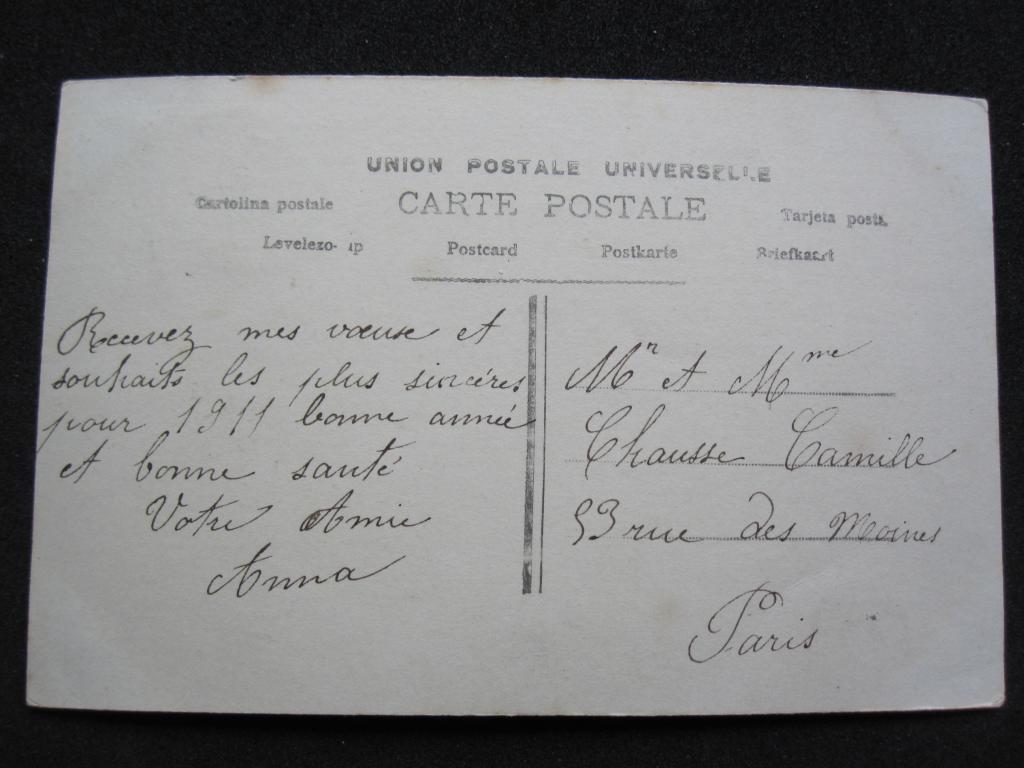 UNION POSTALE UNIVERSELLE
Cartolina postale CARTE POSTALE Tarjeta posta
Levelezo- ap Postcard Postkarte Briefkaart
Recevez mes vœuse et
souhaits les plus sincéres
pour 1911 bonne année
et bonne santé
Votre Amie
Anna
Mr et Mme
Chausse Camille
53 rue des Moines
Paris